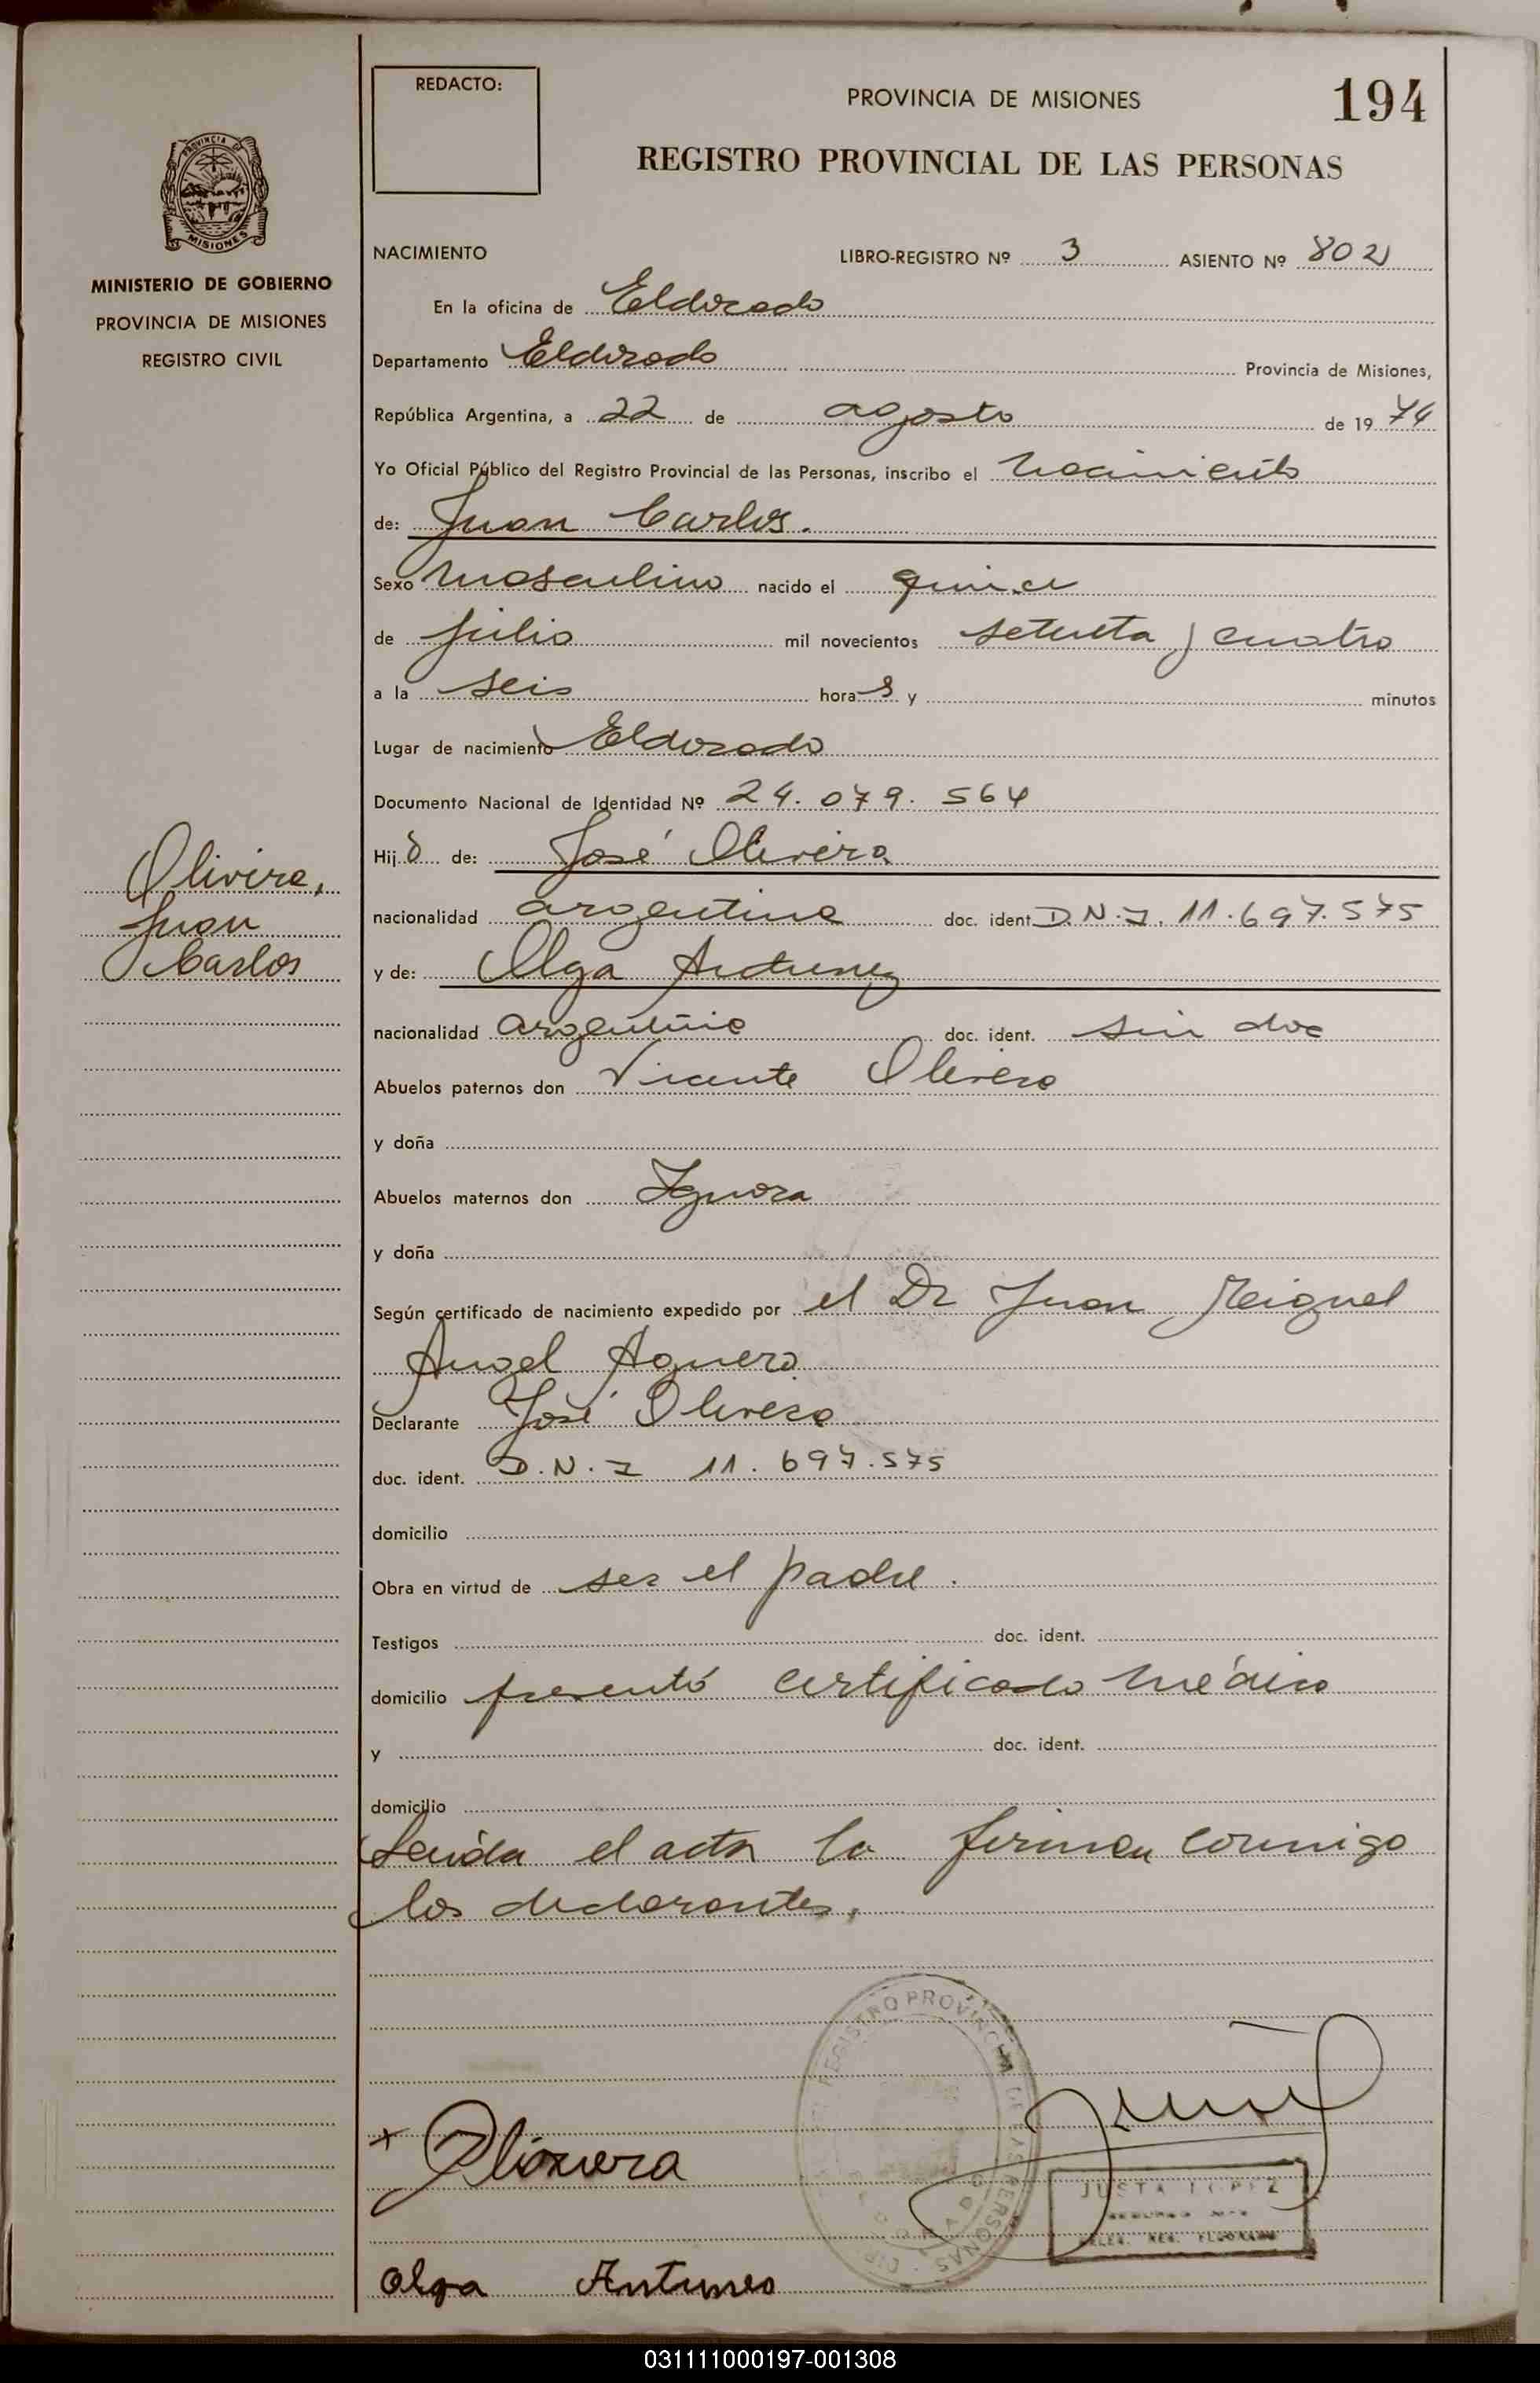 REDACTO:
PROVINCIA DE MISIONES
194
REGISTRO PROVINCIAL DE LAS PERSONAS
PROVINCIA DE
MISIONES
MINISTERIO DE GOBIERNO
PROVINCIA DE MISIONES
REGISTRO CIVIL
NACIMIENTO LIBRO-REGISTRO Nº 3 ASIENTO Nº 802
En la oficina de Eldorado
Departamento Eldorado Provincia de Misiones,
República Argentina, a 22 de agosto de 19 74
Yo Oficial Público del Registro Provincial de las Personas, inscribo el nacimiento
de: Juan Carlos.
Sexo masculino nacido el quince
de julio mil novecientos setenta y cuatro
a la seis hora s y minutos
Lugar de nacimiento Eldorado
Documento Nacional de Identidad Nº 24.079.564
Hij o de: José Olivera
nacionalidad argentina doc. ident. D.N.I. 11.697.575
y de: Olga Antunez
nacionalidad argentina doc. ident. sin doc
Abuelos paternos don Vicente Olivera
y doña
Abuelos maternos don Ignora
y doña
Según certificado de nacimiento expedido por el Dr Juan Miguel
Angel Aguero
Declarante José Olivera
doc. ident. D.N.I 11.697.575
domicilio
Obra en virtud de ser el padre.
Testigos doc. ident.
domicilio presentó certificado médico
y doc. ident.
domicilio
Leída el acta la firman conmigo
los declarantes.
Olivera,
Juan
Carlos
REGISTRO PROVINCIAL DE LAS PERSONAS
Olivera
JUSTA LOPEZ
Olga Antunes
031111000197-001308